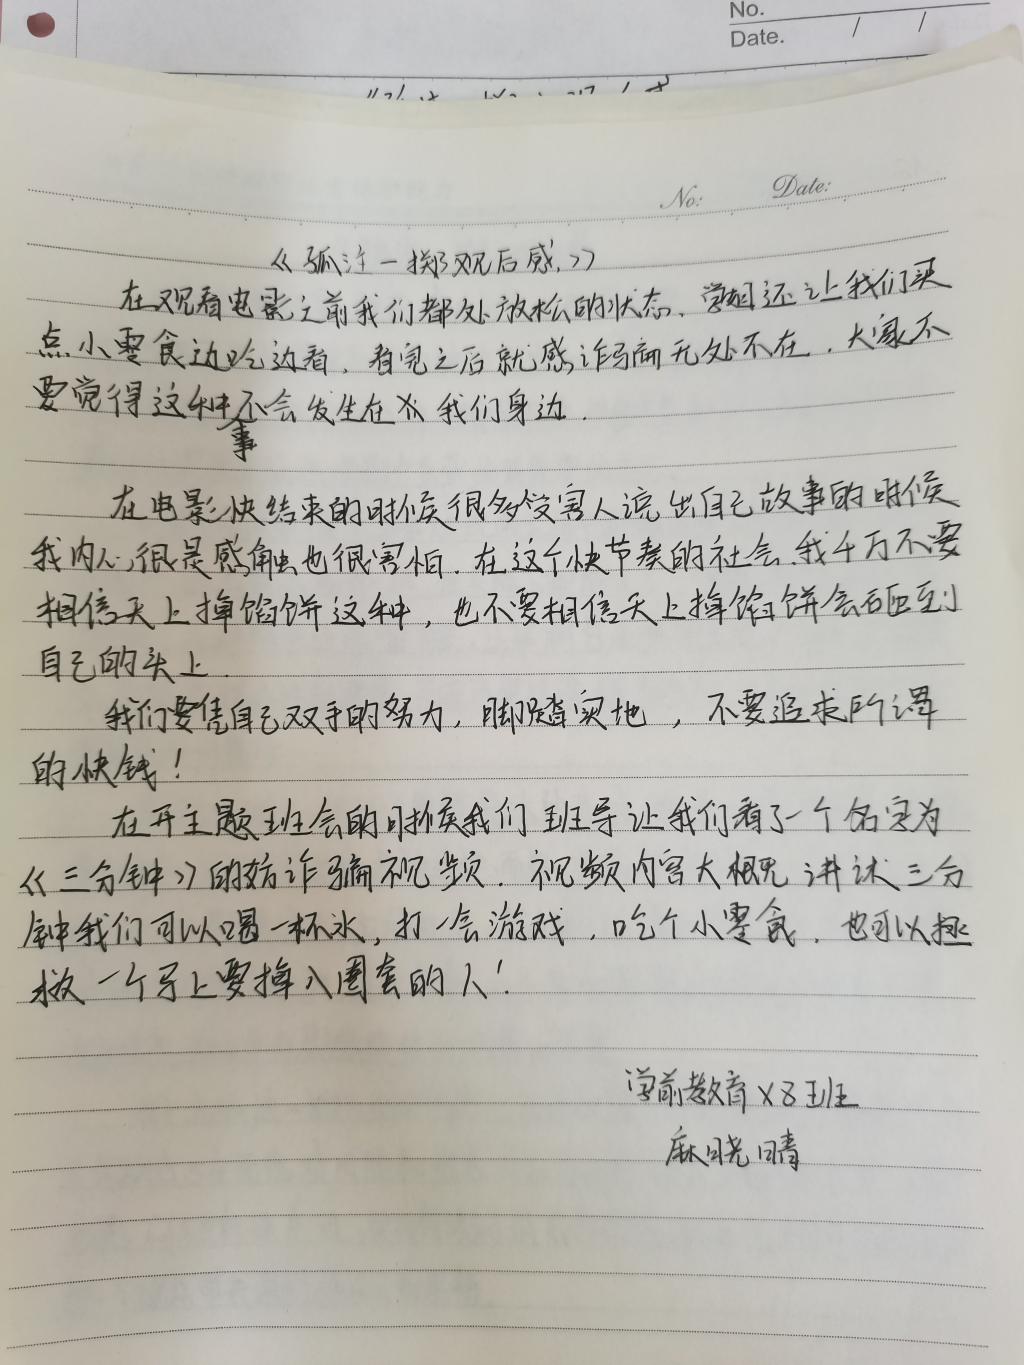 No.
Date. / /
No: Date:
《孤注一掷观后感》
在观看电影之前我们都处放松的状态、学姐还让我们买
点小零食边吃边看，看完之后就感诈骗无处不在，大家不
要觉得这种事不会发生在我们身边．
在电影快结束的时候很多受害人说出自己故事的时候
我内心很是感触也很害怕．在这个快节奏的社会、我千万不要
相信天上掉馅饼这种，也不要相信天上掉馅饼会砸到
自己的头上．
我们要凭自己双手的努力，脚踏实地，不要追求所谓
的快钱！
在开主题班会的时候我们班导让我们看了一个名字为
《三分钟》的妨诈骗视频．视频内容大概无讲述三分
钟我们可以喝一杯水，打一会游戏，吃个小零食．也可以拯
救一个马上要掉入圈套的人！
学前教育X8班
麻晓晴